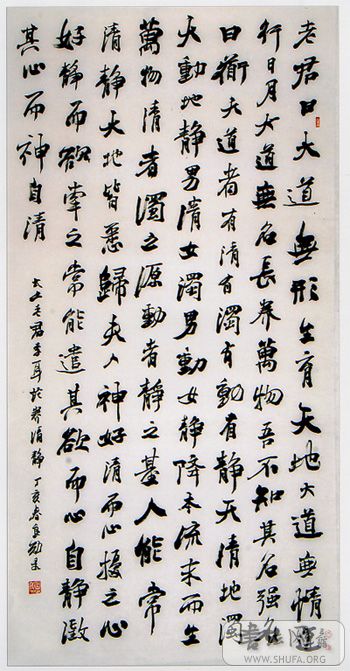 老君曰大道無形生育天地大道無情運
行日月大道無名長養萬物吾不知其名強名
曰衟夫道者有清有濁有動有靜天清地濁
天動地靜男清女濁男動女靜降本流末而生
萬物清者濁之源動者靜之基人能常
清靜天地皆悉歸夫人神好清而心擾之心
好靜而欲牽之常能遣其欲而心自靜澂
其心而神自清
太上老君李耳 清靜 丁亥春
WWW.SHUFA.ORG